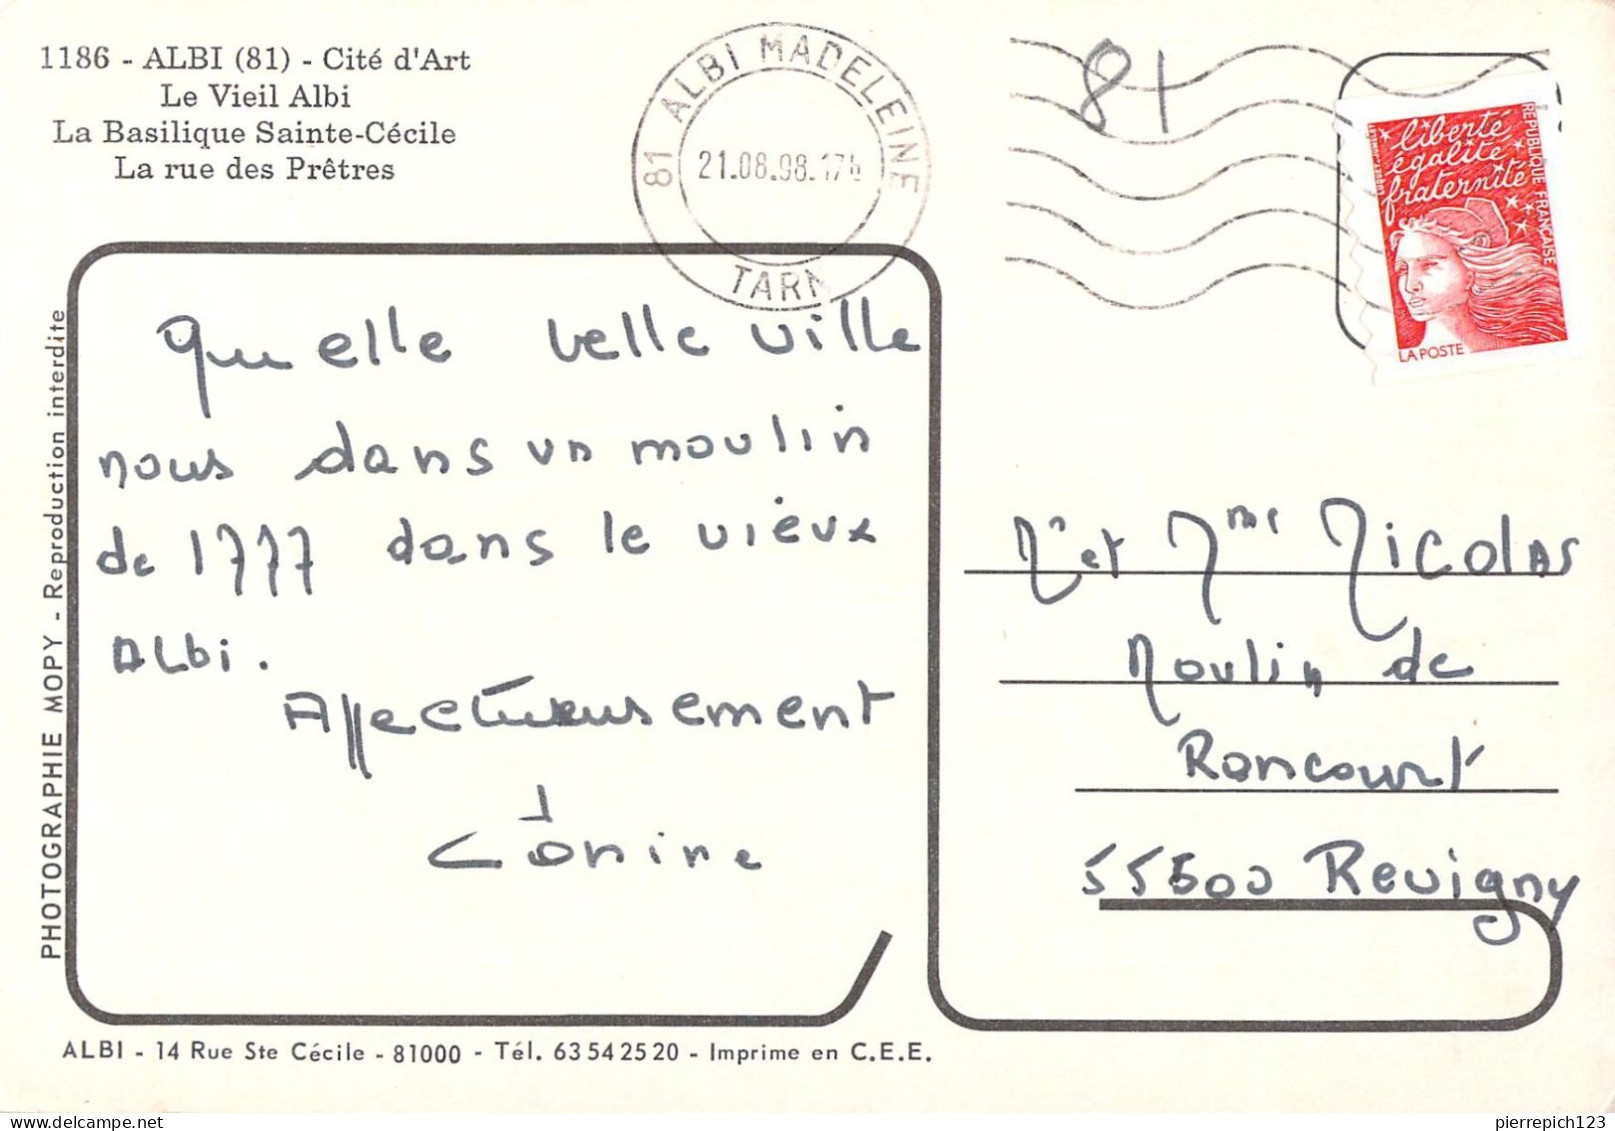 1186 - ALBI (81) - Cité d'Art
Le Vieil Albi
La Basilique Sainte-Cécile
La rue des Prêtres
81 ALBI MADELEINE
21.08.98.17h
TARN
81
liberté
égalité
fraternité
REPUBLIQUE FRANÇAISE
LA POSTE
Quelle belle ville
nous dans un moulin
de 1777 dans le vieux
Albi.
Affectueusement
Mr et Mme Nicolas
Moulin de
Rancourt
55800 Revigny
PHOTOGRAPHIE MOPY - Reproduction interdite
ALBI - 14 Rue Ste Cécile - 81000 - Tél. 63 54 25 20 - Imprime en C.E.E.
pierrepich123